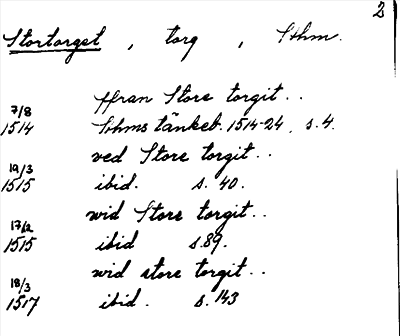 2
Stortorget, torg, Sthm.
ffran Store torgit..
7/8
1514 Sthms tänkeb. 1514-24, s.4.
ved Store torgit..
19/3
1515 ibid. s. 40.
wid Store torgit..
17/2
1515 ibid s.89.
wid store torgit..
18/3
1517 ibid. s. 143